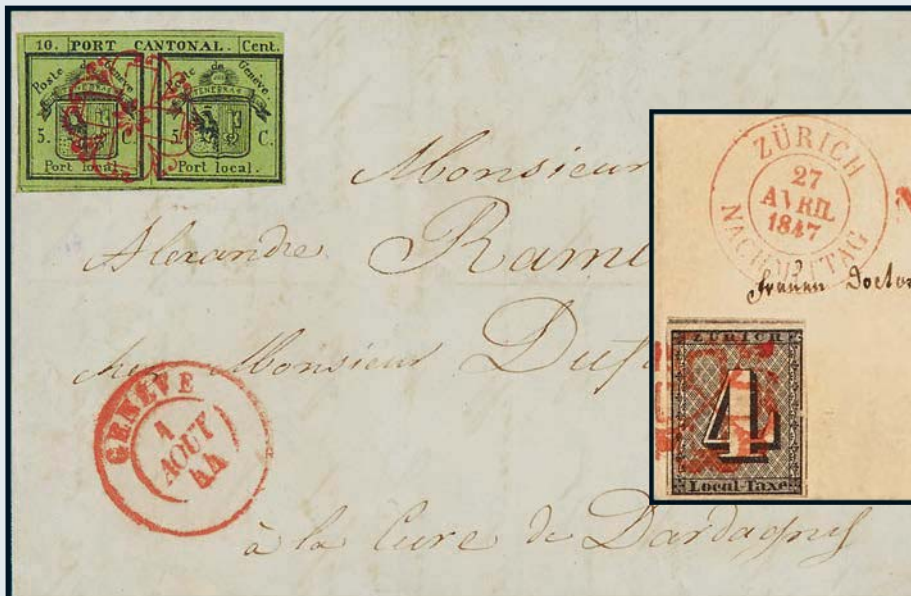 10. PORT CANTONAL. Cent.
Poste de Genève. Poste de Genève.
TENEBRAS TENEBRAS
5. C. 5. C.
Port local. Port local.
Monsieur
Alexandre Rame
chez Monsieur Dufo
GENÈVE
1
AOUT
44
à la Cure de Dardagny
ZÜRICH
27
AVRIL
1847
NACHMITTAG
Frauen Doctor
ZÜRICH
4
Local-Taxe